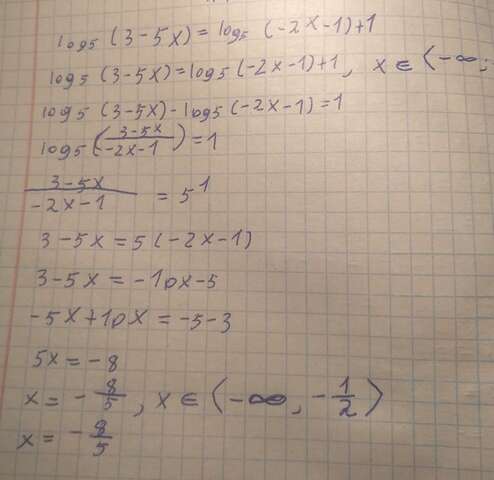 log₅ (3-5x) = log₅ (-2x-1)+1
log₅ (3-5x) = log₅ (-2x-1)+1, x ∈ ⟨-∞;
log₅ (3-5x) - log₅ (-2x-1) = 1
log₅ ( (3-5x)/(-2x-1) ) = 1
(3-5x)/(-2x-1) = 5¹
3-5x = 5(-2x-1)
3-5x = -10x-5
-5x+10x = -5-3
5x = -8
x = -8/5, x ∈ ⟨-∞, -1/2⟩
x = -8/5